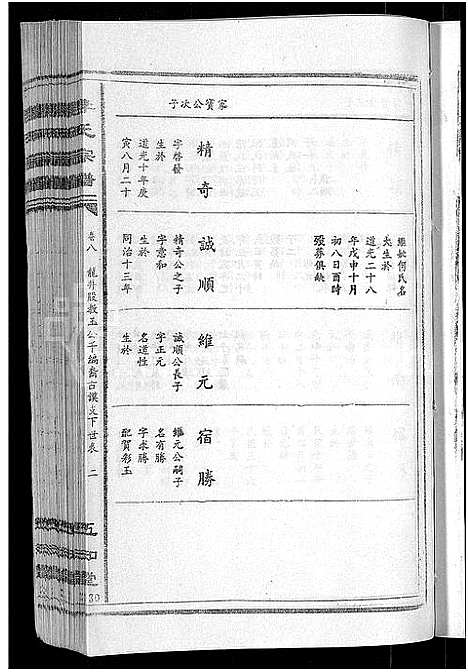 家寶公次子
精奇
字啓發
生於
道光十年庚
寅八月二十
誠順
精奇公之子
字意和
生於
同治十三年
繼妣何氏名
失生於
道光二十八
年戊申十月
初八日酉時
歿葬俱缺
維元
誠順公長子
字正元
名道性
生於
宿勝
維元公嗣子
名有勝
字求勝
配賀彩玉
氏宗譜
卷八
下世表
二
五和堂
30